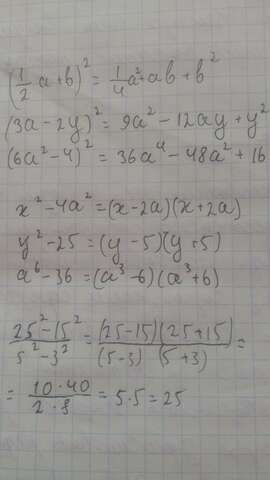 (1/2 a + b)² = 1/4 a² + ab + b²
(3a - 2y)² = 9a² - 12ay + y²
(6a² - 4)² = 36a⁴ - 48a² + 16
x² - 4a² = (x - 2a)(x + 2a)
y² - 25 = (y - 5)(y + 5)
a⁶ - 36 = (a³ - 6)(a³ + 6)
(25² - 15²)/(5² - 3²) = ((25 - 15)(25 + 15))/((5 - 3)(5 + 3)) =
= (10 · 40)/(2 · 8) = 5 · 5 = 25